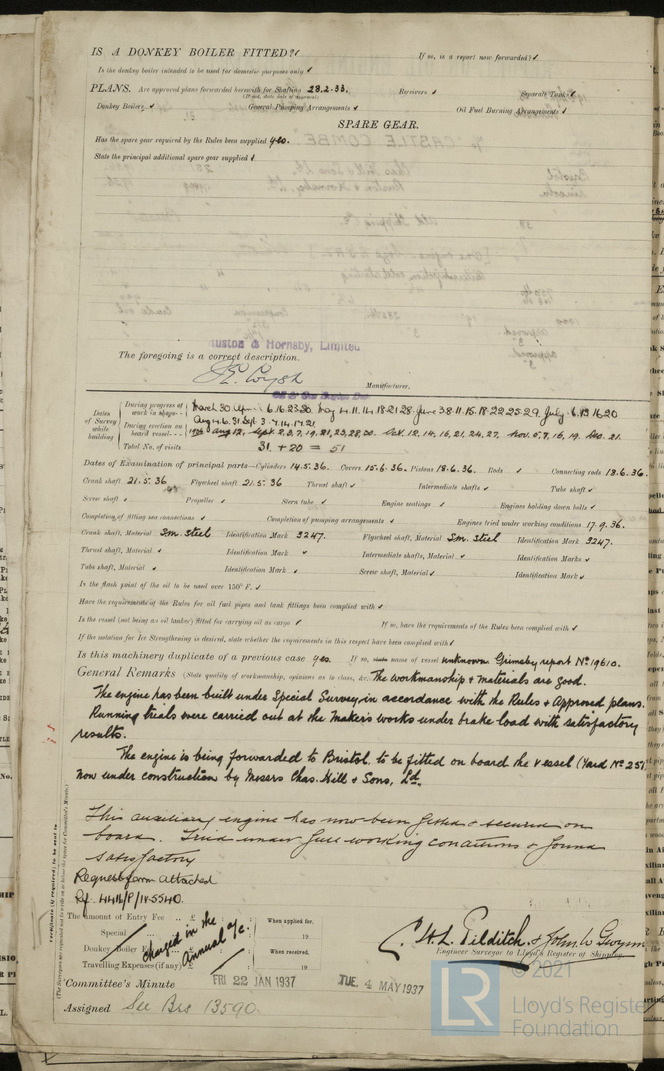 IS A DONKEY BOILER FITTED? ✓ If so, is a report now forwarded? ✓
Is the donkey boiler intended to be used for domestic purposes only ✓
PLANS. Are approved plans forwarded herewith for Shafting 28.2.33. Receivers ✓ Separate Tanks ✓
(If not, state date of approval)
Donkey Boilers ✓ General Pumping Arrangements ✓ Oil Fuel Burning Arrangements ✓
SPARE GEAR.
Has the spare gear required by the Rules been supplied yes.
State the principal additional spare gear supplied ✓
Ruston & Hornsby, Limited
The foregoing is a correct description.
Manufacturer.
Dates of Survey while building
During progress of work in shops - - March 30. Apr. 6.16.23.30. May 4.11.14.18.21.28. June 3.8.11.15.18.22.25.29. July 6.13.16.20
Aug 4.6.31. Sept 3.7.14.17.21
During erection on board vessel - - - 1936 Aug 12, Sept. 2,3,7,19,21,23,28,30. Oct. 12,14,16,21,24,27, Nov. 5,7,16,19. Dec. 21.
Total No. of visits 31 + 20 = 51
Dates of Examination of principal parts—Cylinders 14.5.36. Covers 15.6.36. Pistons 18.6.36. Rods ✓ Connecting rods 18.6.36.
Crank shaft 21.5.36 Flywheel shaft 21.5.36 Thrust shaft ✓ Intermediate shafts ✓ Tube shaft ✓
Screw shaft ✓ Propeller ✓ Stern tube ✓ Engine seatings ✓ Engines holding down bolts ✓
Completion of fitting sea connections ✓ Completion of pumping arrangements ✓ Engines tried under working conditions 17.9.36.
Crank shaft, Material Sm. Steel Identification Mark 3247. Flywheel shaft, Material Sm. Steel Identification Mark 3247.
Thrust shaft, Material ✓ Identification Mark ✓ Intermediate shafts, Material ✓ Identification Marks ✓
Tube shaft, Material ✓ Identification Mark ✓ Screw shaft, Material ✓ Identification Mark ✓
Is the flash point of the oil to be used over 150° F. ✓
Have the requirements of the Rules for oil fuel pipes and tank fittings been complied with ✓
Is the vessel (not being an oil tanker) fitted for carrying oil as cargo ✓ If so, have the requirements of the Rules been complied with ✓
If the notation for Ice Strengthening is desired, state whether the requirements in this respect have been complied with ✓
Is this machinery duplicate of a previous case yes. If so, state name of vessel unknown. Grimsby report No. 19610.
General Remarks (State quality of workmanship, opinions as to class, &c. The workmanship & materials are good.
The engine has been built under Special Survey, in accordance with the Rules & Approved plans.
Running trials were carried out at the Makers works under brake load with satisfactory
results.
The engine is being forwarded to Bristol to be fitted on board the Vessel (Yard No. 251)
now under construction by Messrs Chas. Hill & Sons, Ld.
This auxiliary engine has now been fitted & secured on
board. Tried under full working conditions & found
satisfactory
Request form attached
The amount of Entry Fee .. £ When applied for,
Special .. £ 19
Donkey Boiler Fee .. £ When received,
Travelling Expenses (if any) £ 19
Charged in the
Annual a/c.
C. H. L. Pilditch. & John W Gwynn
Engineer Surveyor to Lloyd's Register of Shipping.
Committee's Minute FRI 22 JAN 1937 TUE. 4 MAY 1937
Assigned See Brs 13590.
© 2021
LR
Lloyd's Register
Foundation